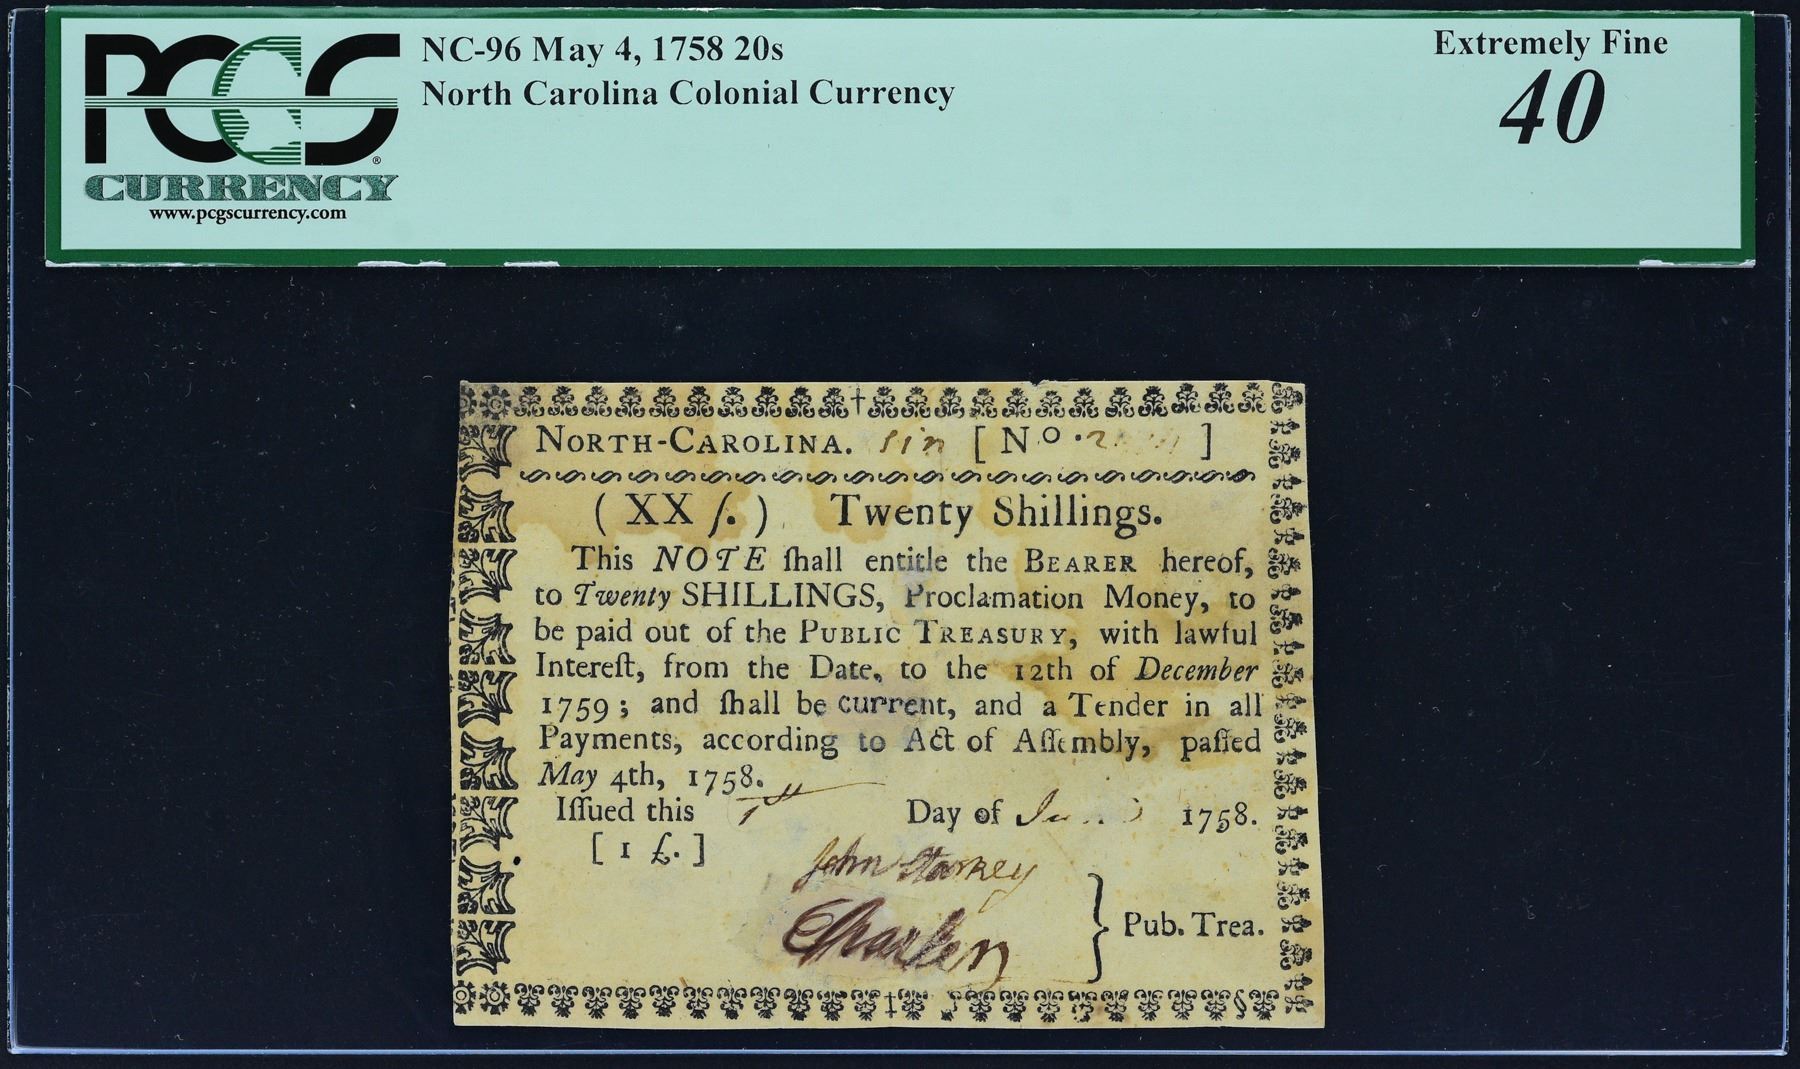 PCGS
CURRENCY
www.pcgscurrency.com
NC-96 May 4, 1758 20s
North Carolina Colonial Currency
Extremely Fine
40
NORTH-CAROLINA. [ No. ]
( XX ſ. ) Twenty Shillings.
This NOTE ſhall entitle the BEARER hereof,
to Twenty SHILLINGS, Proclamation Money, to
be paid out of the PUBLIC TREASURY, with lawful
Intereſt, from the Date, to the 12th of December
1759; and ſhall be current, and a Tender in all
Payments, according to Act of Aſſembly, paſſed
May 4th, 1758.
Iſſued this 1st Day of 1758.
[ 1 £. ]
John Starkey
Pub. Trea.